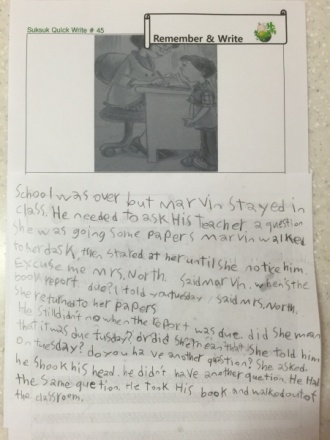 Suksuk Quick Write # 45
Remember & Write
School was over but Marvin stayed in
class. He needed to ask His teacher a question
She was going some papers marvin walked
to her dask, then stared at her until she notice him
Excuse me mrs. North. said marvin. when's the
book report due? I told you tuesday said mrs. North.
She returned to her papers
He still didn't no when the report was due. did she mean
that it was due tuesday? or did she mean that she told him
on tuesday? do you have another question? She asked
he shook his head. he didn't have another quetion. He Had
the same quetion. He Took His book and walked out of
the classroom.